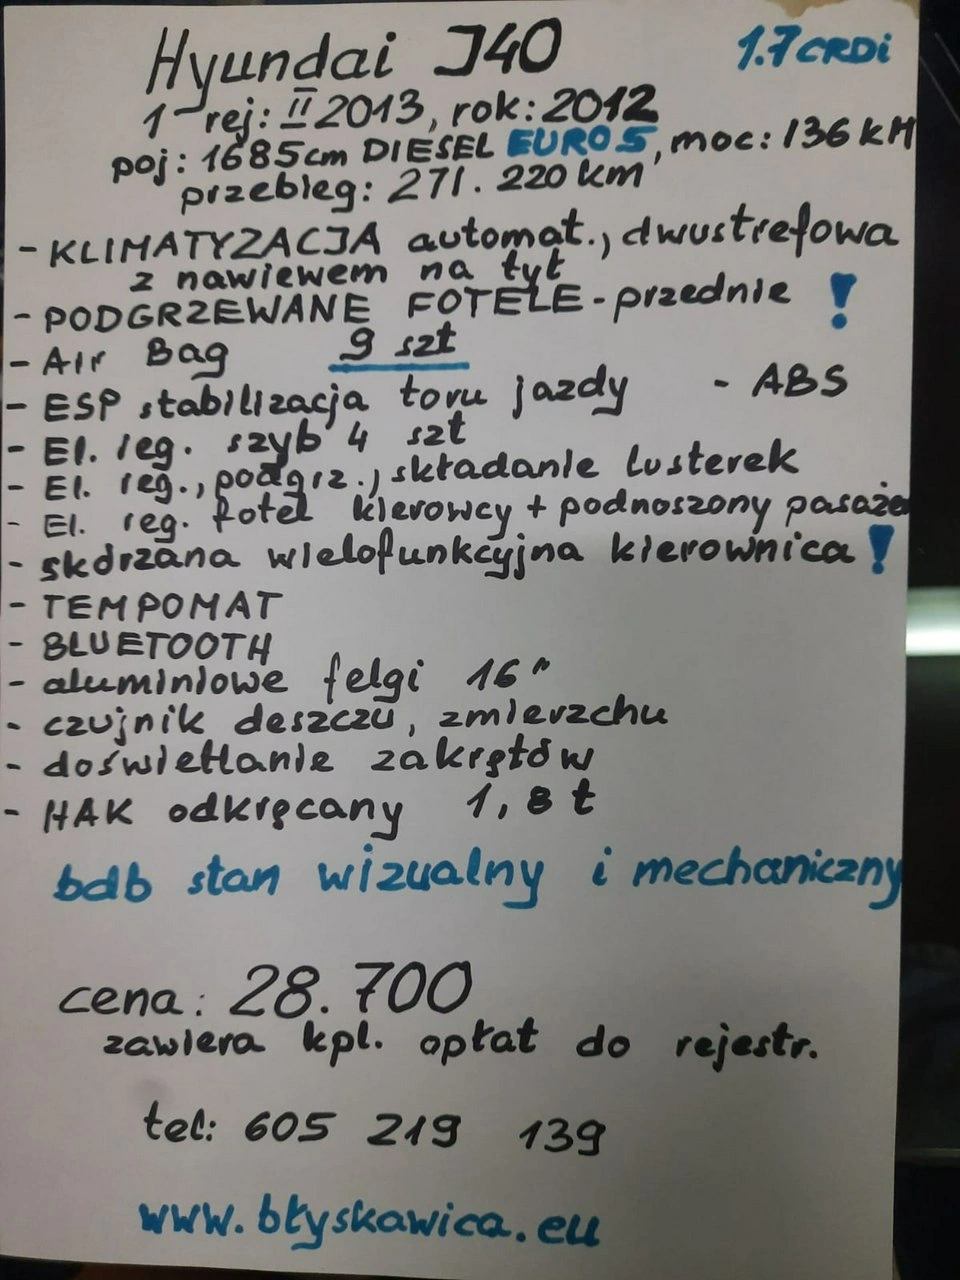 Hyundai J40 1.7 CRDi
1 rej: II 2013, rok: 2012
poj: 1685cm DIESEL EURO 5, moc: 136 kM
przebieg: 271.220 km
- KLIMATYZACJA automat., dwustrefowa
z nawiewem na tył
- PODGRZEWANE FOTELE - przednie !
- Air Bag 9 szt
- ESP stabilizacja toru jazdy - ABS
- El. reg. szyb 4 szt
- El. reg., podgrz., składanie lusterek
- El. reg. fotel kierowcy + podnoszony pasaże
- skórzana wielofunkcyjna kierownica !
- TEMPOMAT
- BLUETOOTH
- aluminiowe felgi 16"
- czujnik deszczu, zmierzchu
- doświetlanie zakrętów
- HAK odkręcany 1,8 t
bdb stan wizualny i mechaniczny
cena: 28.700
zawiera kpl. opłat do rejestr.
tel: 605 219 139
www.błyskawica.eu